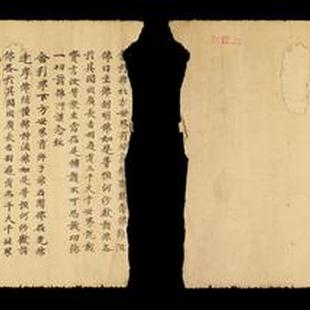 利弗北方世界有
佛日生佛網明佛如是等恒河沙數諸佛各
於其國出廣長舌相遍覆三千大千世界說誠
實言汝等眾生當信是稱讚不可思議功德
一切諸佛所護念經
舍利弗下方世界有師子佛名聞佛名光佛
達摩佛法幢佛持法佛如是等恒河沙數諸
佛各於其國出廣長舌相遍覆三千大千世界